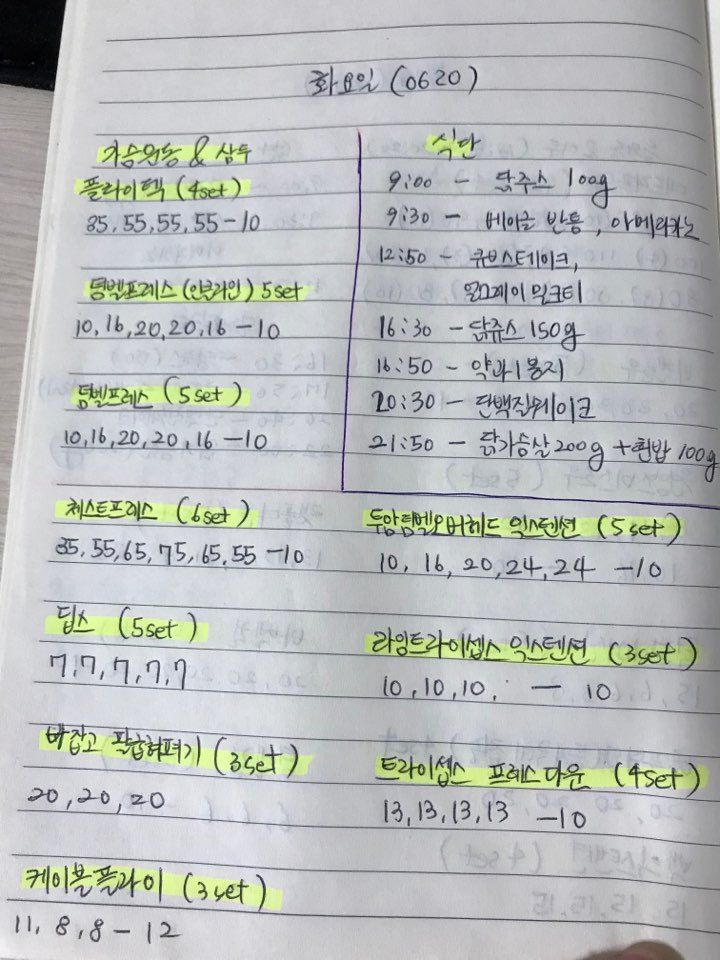 화요일 (0620)
가슴운동 & 삼두
플라이텍 (4set)
35, 55, 55, 55 - 10
덤벨프레스 (인클라인) 5set
10, 16, 20, 20, 16 - 10
덤벨프레스 (5set)
10, 16, 20, 20, 16 - 10
식단
9:00 - 닭쥬스 100g
9:30 - 베이글 반통, 아메리카노
12:50 - 큐브스테이크,
얼그레이 밀크티
16:30 - 닭쥬스 150g
16:50 - 약과 1봉지
20:30 - 단백질쉐이크
21:50 - 닭가슴살 200g + 흰밥 100g
체스트프레스 (6set)
35, 55, 65, 75, 65, 55 - 10
딥스 (5set)
7, 7, 7, 7, 7
바잡고 팔굽혀펴기 (3set)
20, 20, 20
케이블플라이 (3set)
11, 8, 8 - 12
투암덤벨오버헤드 익스텐션 (5set)
10, 16, 20, 24, 24 - 10
라잉트라이셉스 익스텐션 (3set)
10, 10, 10, - 10
트라이셉스 프레스다운 (4set)
13, 13, 13, 13 - 10